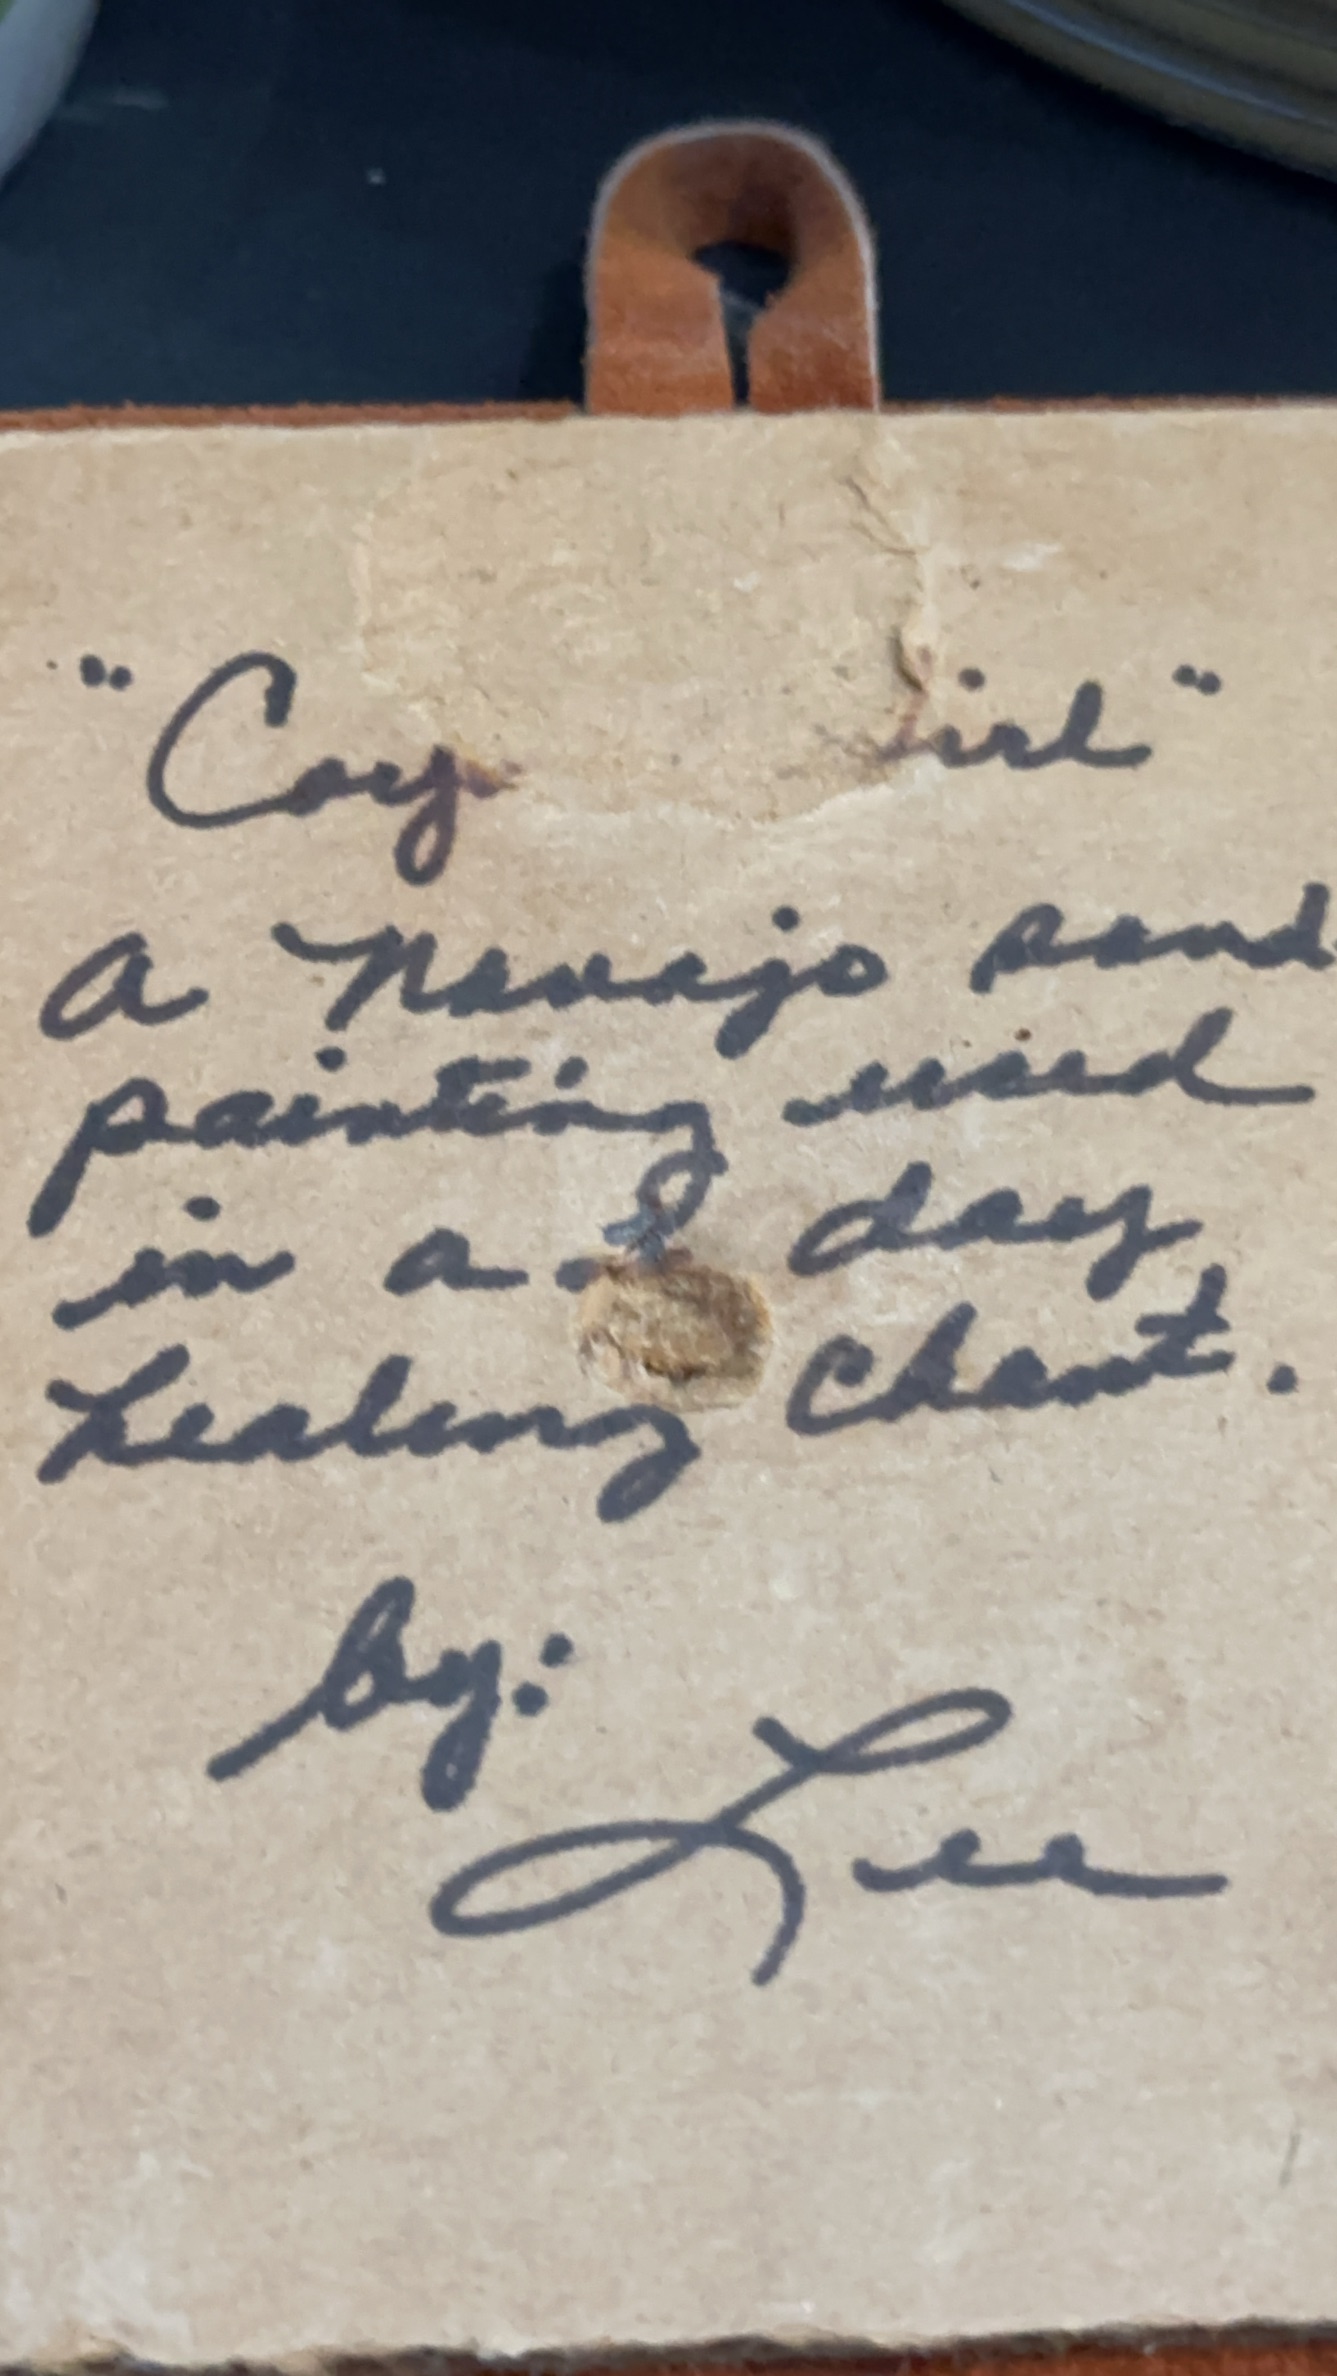 "Coy irl"
A Navajo sand
painting used
in a day
healing chant.
by:
Lee